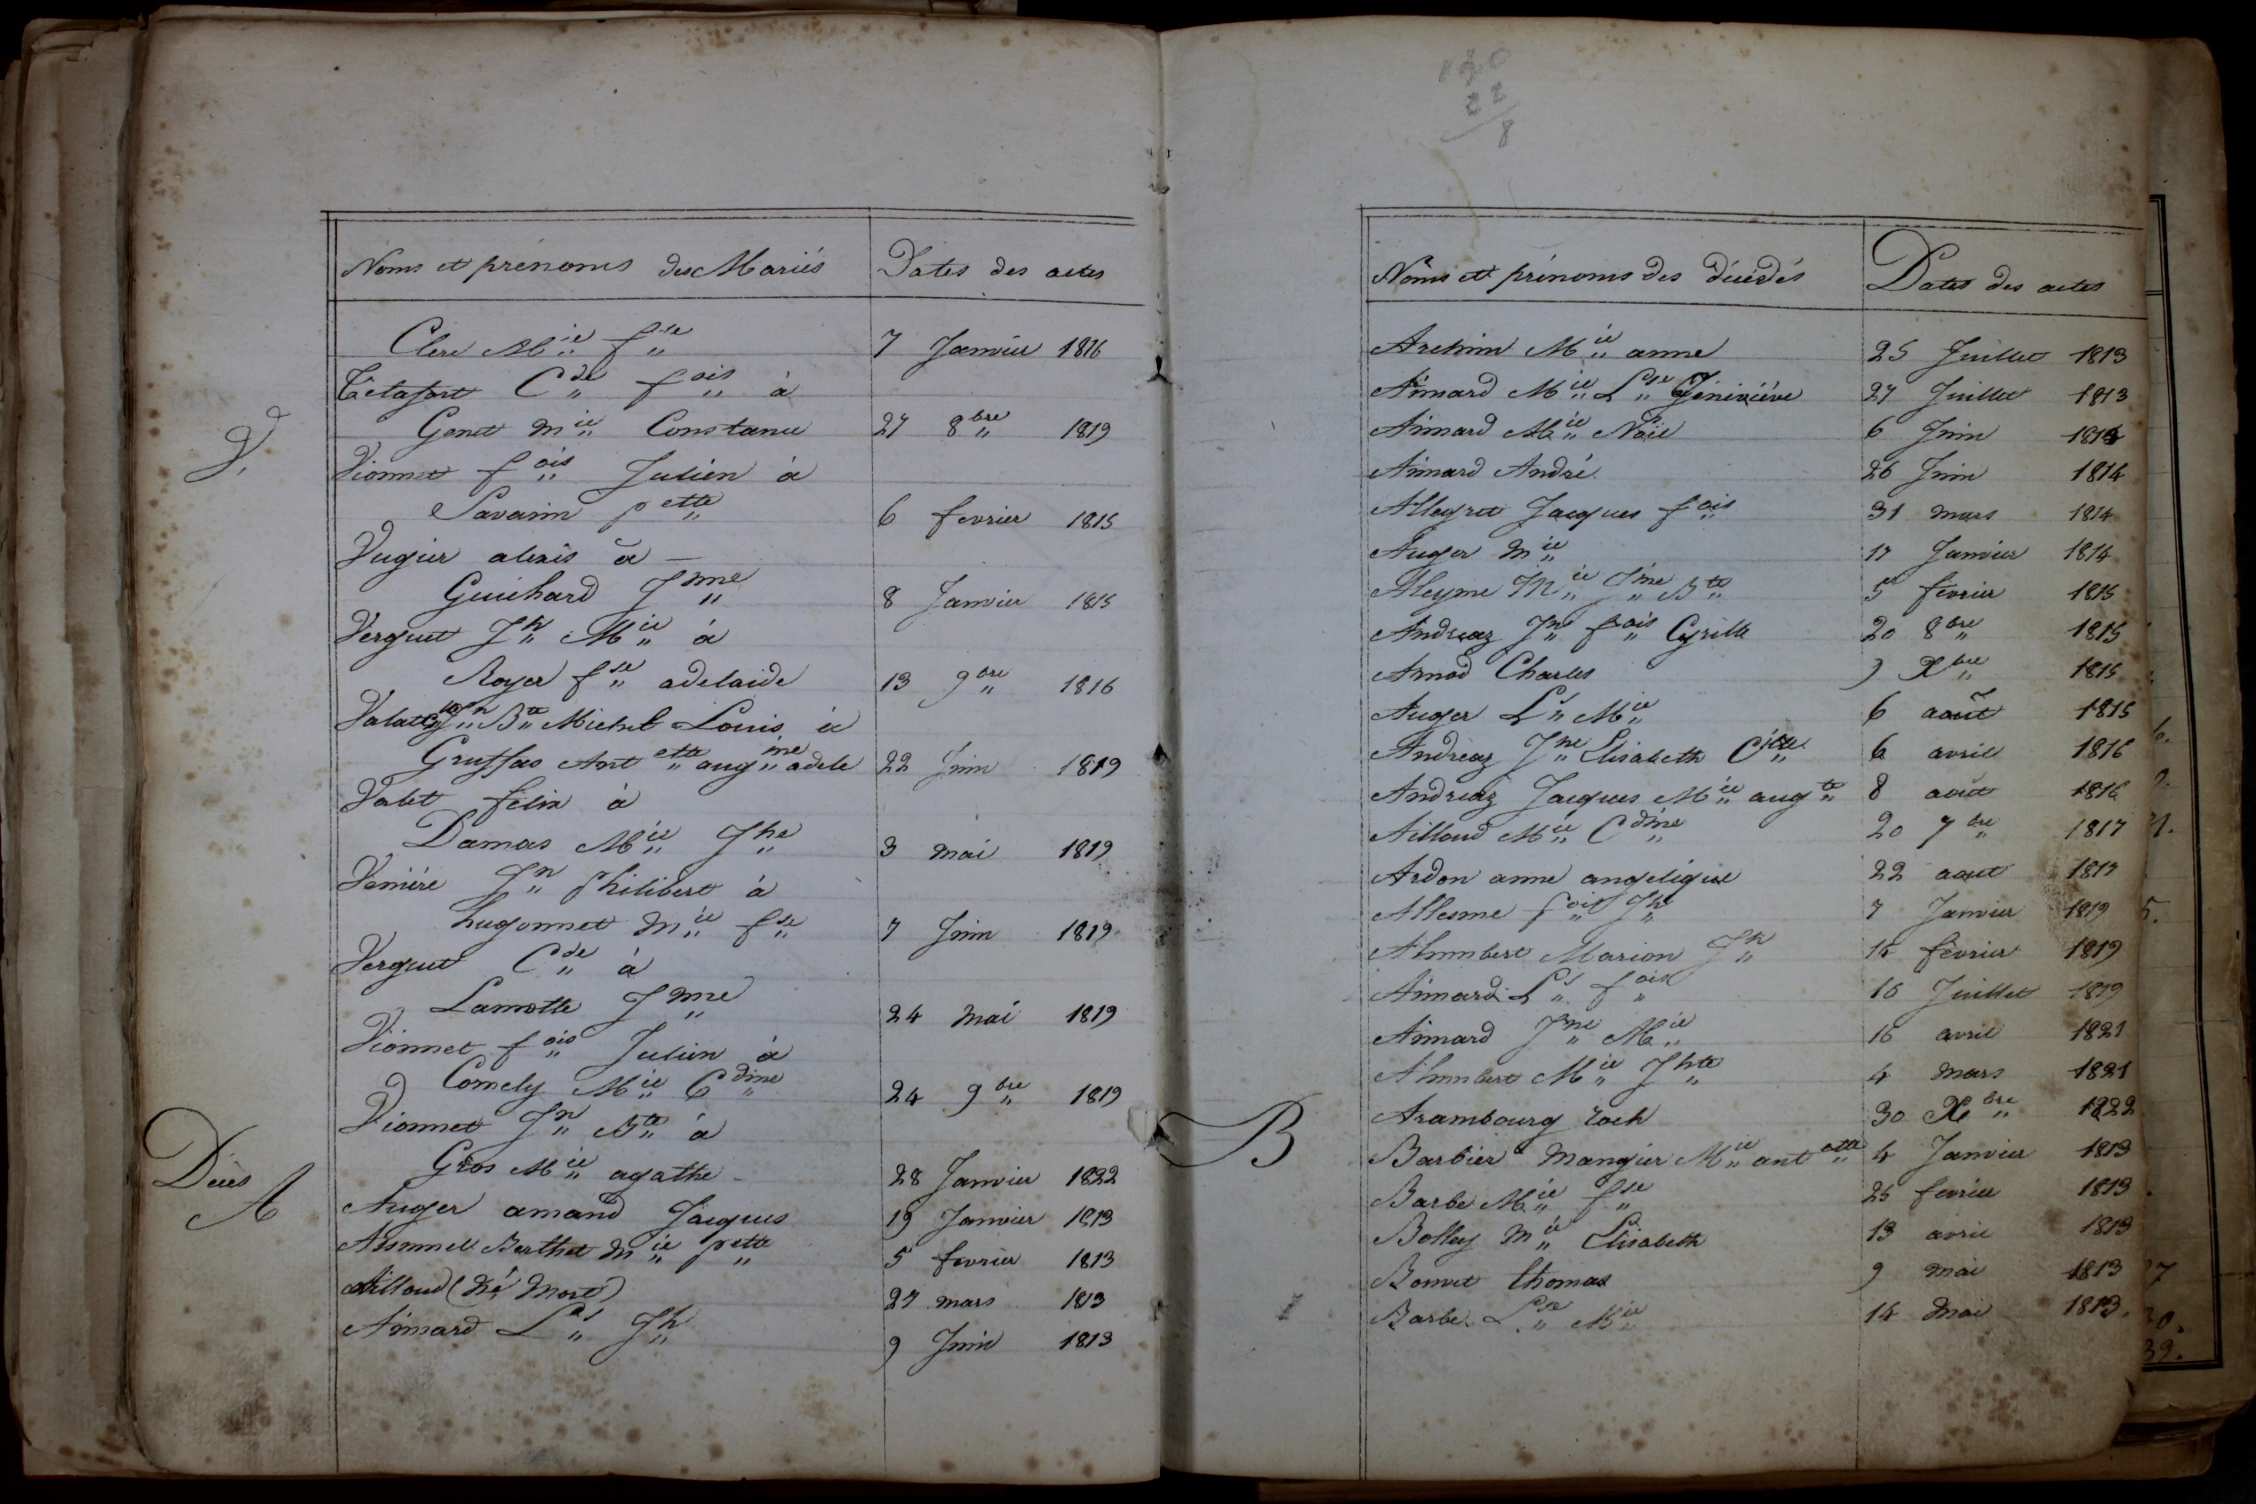 Noms et prénoms des Mariés Dates des actes
Clerc Mie fse 7 Janvier 1816
Têtafort Cde fois à
Genet Mie Constance 27 8bre 1819
V.
Vionnet fois Julien à
Savarin pette 6 fevrier 1815
Vugier alexis à
Guichard Jme 8 Janvier 1815
Verguet Jh Mie à
Royer fse adelaide 13 9bre 1816
Jn Bte Michel Louis à
Gruffas Antette augine adele 22 Juin 1819
Valet félix à
Damas Mie Jhe 3 mai 1819
Jn philibert à
hugonnet Mie fse 7 Juin 1819
Verguet Cde à
Lamotte Jme 24 Mai 1819
Vionnet fois Julien à
Comely Mie Cdine 24 9bre 1819
Vionnet Jn Bte à
Gros Mie agathe 28 Janvier 1822
Décès
A
Auger amand Jacques 19 Janvier 1813
Berthet Mie pette 5 fevrier 1813
Aillaud (né Mort) 27 mars 1813
Aimard Ls Jh 9 Juin 1813
120
22
8
Noms et prénoms des décédés Dates des actes
Archim Mie anne 25 Juillet 1813
Aimard Mie Lse Géneviève 27 Juillet 1813
Aimard Mie 6 Juin 1814
Aimard André 26 Juin 1814
Allegret Jacques fois 31 mars 1814
Auger Mie 17 Janvier 1814
Aleyme Mie Jme Bte 5 février 1815
Andreaz Jn fois Cyrille 20 8bre 1815
Arnod Charles 9 Xbre 1815
Auger Ls Mie 6 août 1815
Andreaz Jne Elisabeth 6 avril 1816
Andreaz Jacques Mie augte 8 août 1816
Aillaud Mie Cdine 20 7bre 1817
Ardon anne angéligue 22 aout 1817
Allesme fois Jh 7 Janvier 1819
Ahumbert Marion Jh 14 février 1819
Aimard Ls fois 16 Juillet 1819
Aimard Jne Mie 16 avril 1821
Ahumbert Mie Jhte 4 mars 1821
Arambourg roch 30 Xbre 1822
B
Barbier Mangier Mie antette 4 Janvier 1813
Barbe Mie fse 25 fevrier 1813
Bolley Mie Elisabeth 13 avril 1813
Bonnet thomas 9 mai 1813
Barbe Lse Mie 14 Mai 1813.